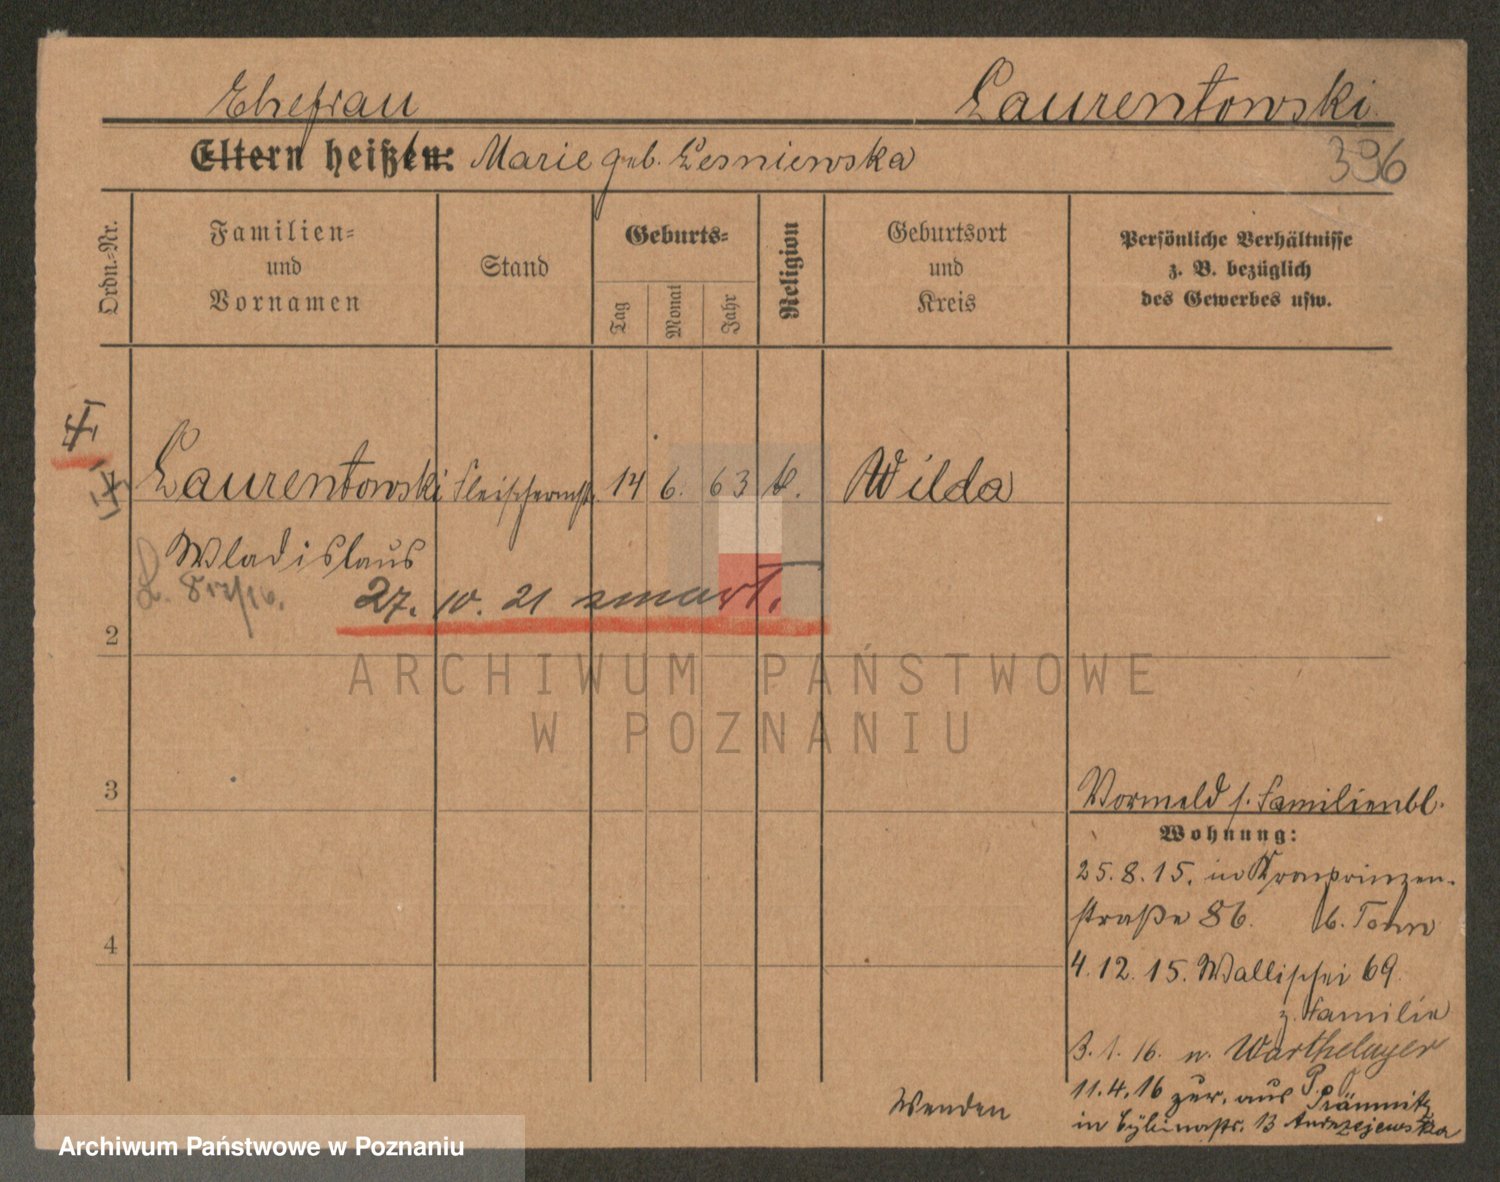 Ehefrau Laurentowski
Eltern heißen: Marie geb. Lesniewska
396
Ordn.-Nr.
Familien-
und
Vornamen
Stand
Geburts-
Tag
Monat
Jahr
Religion
Geburtsort
und
Kreis
Persönliche Verhältnisse
z. B. bezüglich
des Gewerbes usw.
Laurentowski Fleischermstr. 14 6. 63 k. Wilda
Wladislaus
27. 10. 21 zmarł.
2
3
4
Vormeld s. Familienbl.
Wohnung:
25. 8. 15. in Kronprinzen-
straße 86. b. Tomw
4. 12. 15. Wallischei 69.
z. Familie
3. 1. 16. n. Warthelager
11. 4. 16 zur. aus P.
in 13 Andrzejewska
Wenden
ARCHIWUM PAŃSTWOWE
W POZNANIU
Archiwum Państwowe w Poznaniu